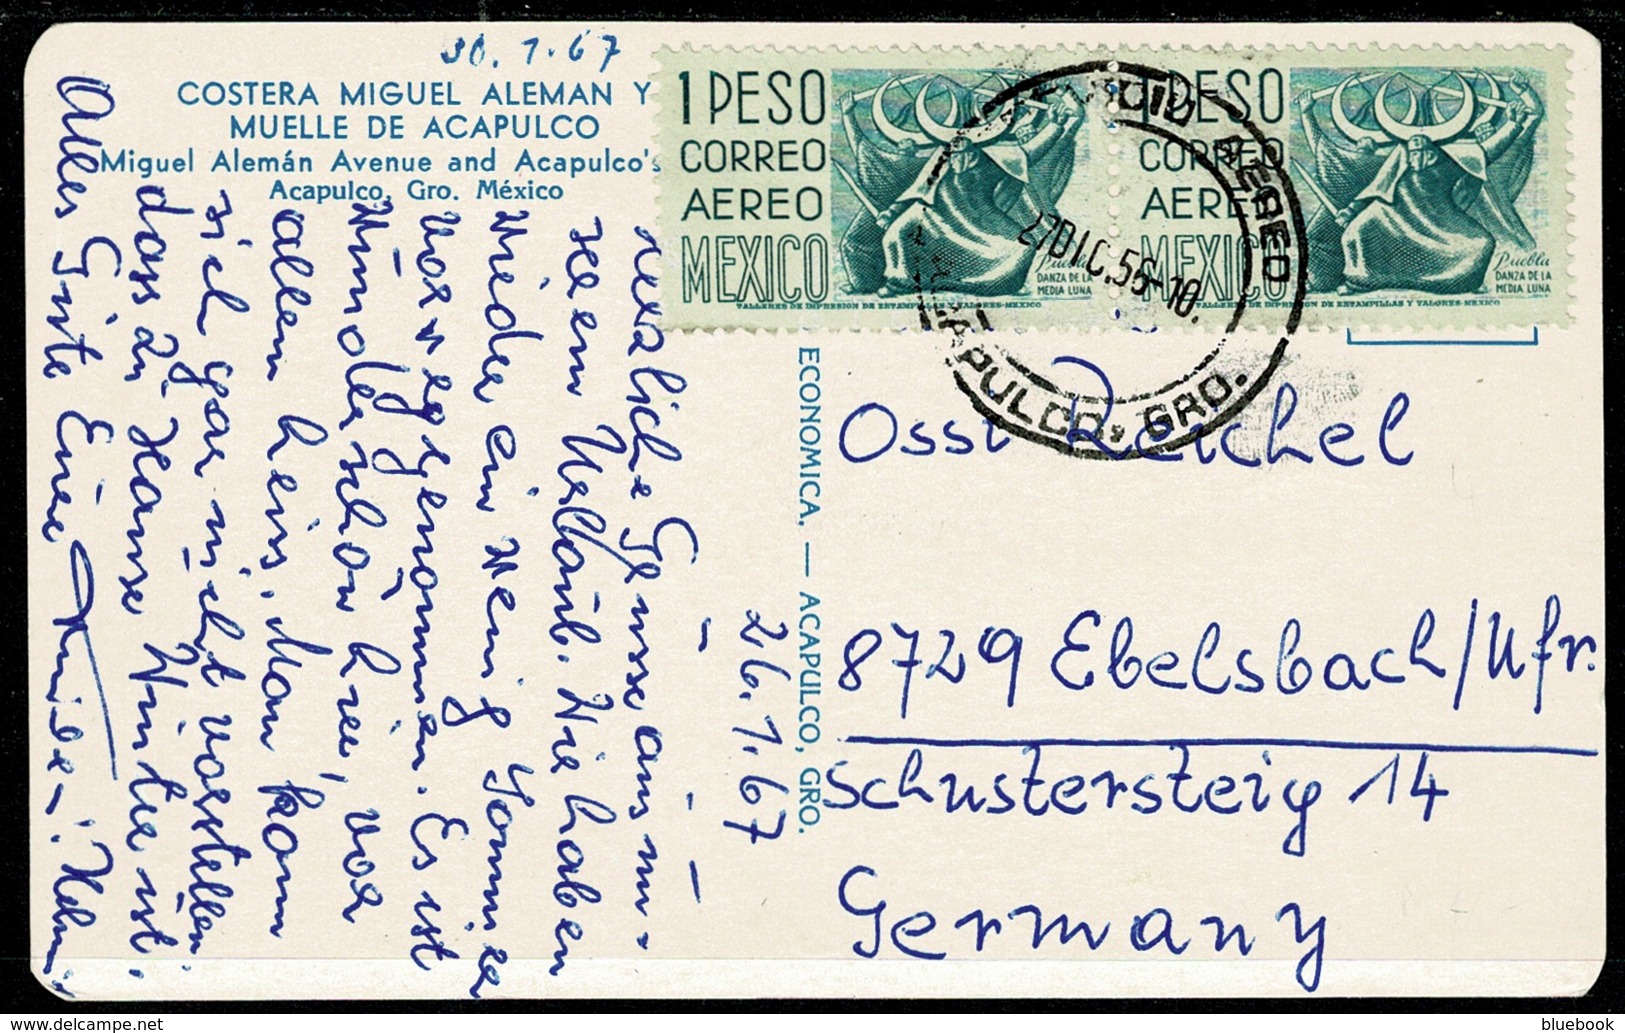 30.1.67
COSTERA MIGUEL ALEMAN Y
MUELLE DE ACAPULCO
Miguel Alemán Avenue and Acapulco's
Acapulco, Gro. México
26.1.67
Herzliche Grüsse aus un-
serem Urlaub. Wir haben
wieder ein wenig Sommer
vorweggenommen. Es ist
wunderschön hier, vor
allem heiss. Man kann
sich gar nicht vorstellen
dass zu Hause Winter ist.
Alles Gute Eure
ECONOMICA. — ACAPULCO, GRO.
1 PESO
CORREO
AEREO
MEXICO
Puebla
DANZA DE LA
MEDIA LUNA
TALLERES DE IMPRESION DE ESTAMPILLAS Y VALORES-MEXICO
1 PESO
CORREO
AEREO
MEXICO
Puebla
DANZA DE LA
MEDIA LUNA
TALLERES DE IMPRESION DE ESTAMPILLAS Y VALORES-MEXICO
AEREO
27 DIC. 56-10.
ACAPULCO, GRO.
Ossi Reichel
8729 Ebelsbach/Ufr.
Schustersteig 14
Germany
bluebook